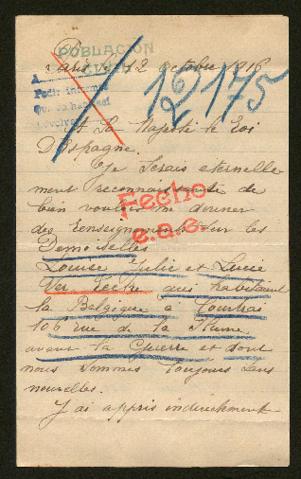 POBLACION
CIVIL
Paris le 12 octobre 1916
12175
A
Pedir informes
A Sa Majesté le Roi
D'Espagne.
Je serais eternelle
ment reconnaissante de
bien vouloir me donner
des renseignements sur les
Fecho
e.a.c.
Demoiselles
Louise Julie et Lucie
qui habitaient
la Belgique à Courtrai
106 rue de la Plume
avant la Guerre et dont
nous sommes toujours sans
nouvelles.
J'ai appris indirectement